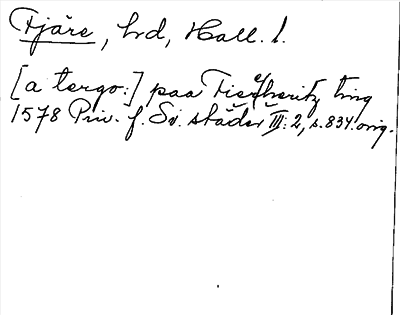 Fjäre, hd, Hall. l.
[a tergo:] paa Fierheritz ting
1578 Priv. f. Sv. städer III: 2, s. 834. orig.